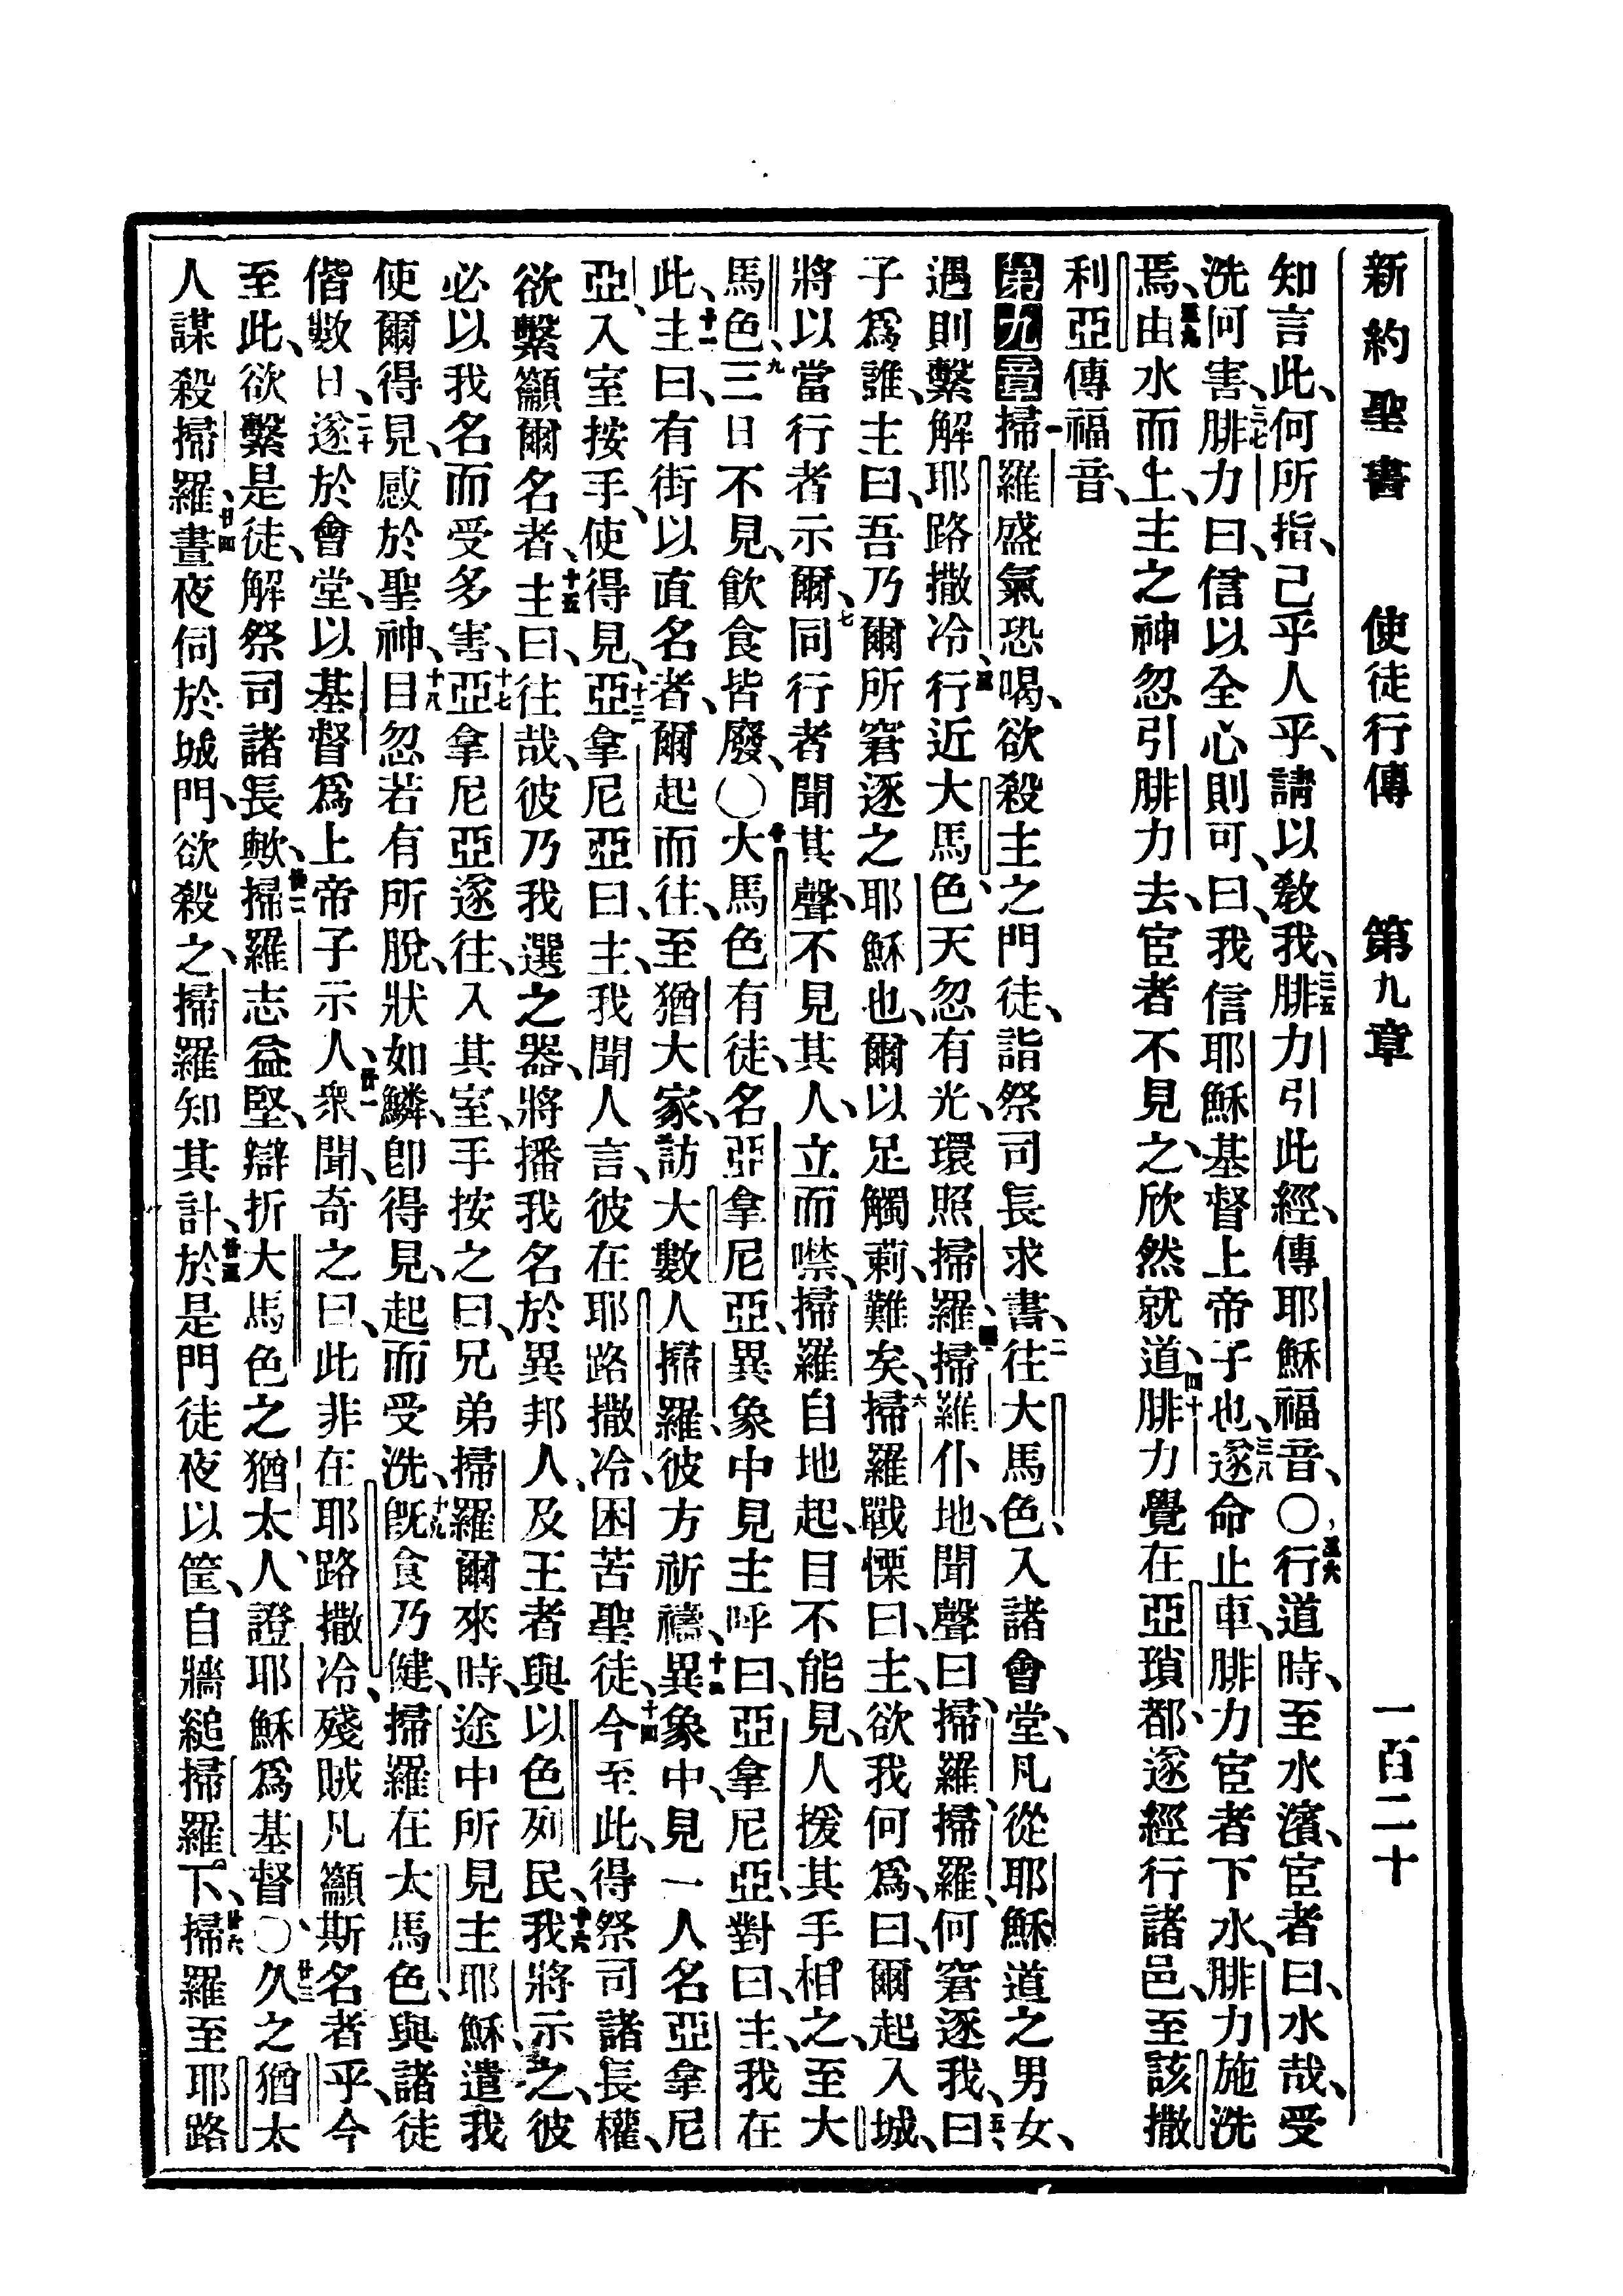 新約聖書 使徒行傳 第九章 一百二十
知言此、何所指、己乎人乎、請以敎我、三五腓力引此經、傳耶穌福音、〇三六行道時、至水濱、宦者曰、水哉、受
洗何害、三七腓力曰、信以全心則可、曰、我信耶穌基督上帝子也、三八遂命止車、腓力宦者下水、腓力施洗
焉、三九由水而上、主之神忽引腓力去、宦者不見之、欣然就道、四十腓力覺在亞瑣都、遂經行諸邑、至該撒
利亞傳福音、
第九章一掃羅盛氣恐喝、欲殺主之門徒、詣祭司長求書、二往大馬色、入諸會堂、凡從耶穌道之男女、
遇則繫解耶路撒冷、三行近大馬色、天忽有光、環照掃羅、四掃羅仆地、聞聲曰、掃羅、掃羅、何窘逐我、五曰、
子爲誰、主曰、吾乃爾所窘逐之耶穌也、爾以足觸莿、難矣、六掃羅戰慄曰、主、欲我何爲、曰、爾起入城、
將以當行者示爾、七同行者聞其聲、不見其人、立而噤、掃羅自地起、目不能見、人援其手相之、至大
馬色、九三日不見、飮食皆廢、〇十大馬色有徒、名亞拿尼亞、異象中見主呼曰、亞拿尼亞、對曰、主、我在
此、十一主曰、有街以直名者、爾起而往、至猶大家、訪大數人掃羅、彼方祈禱、十二異象中、見一人名亞拿尼
亞、入室按手、使得見、十三亞拿尼亞曰、主、我聞人言、彼在耶路撒冷、困苦聖徒、十四今至此、得祭司諸長權、
欲繫籲爾名者、十五主曰、往哉、彼乃我選之器、將播我名於異邦人、及王者與以色列民、十六我將示之、彼
必以我名而受多害、十七亞拿尼亞遂往、入其室、手按之曰、兄弟掃羅、爾來時、途中所見主耶穌、遣我
使爾得見、感於聖神、十八目忽若有所脫、狀如鱗、卽得見、起而受洗、十九旣食乃健、掃羅在大馬色、與諸徒
偕數日、二十遂於會堂、以基督爲上帝子示人、廿一衆聞、奇之曰、此非在耶路撒冷、殘賊凡籲斯名者乎、今
至此、欲繫是徒、解祭司諸長歟、廿二掃羅志益堅、辯折大馬色之猶太人、證耶穌爲基督、〇廿三久之、猶太
人謀殺掃羅、廿四晝夜伺於城門、欲殺之、掃羅知其計、廿五於是門徒夜以筐、自牆縋掃羅下、廿六掃羅至耶路